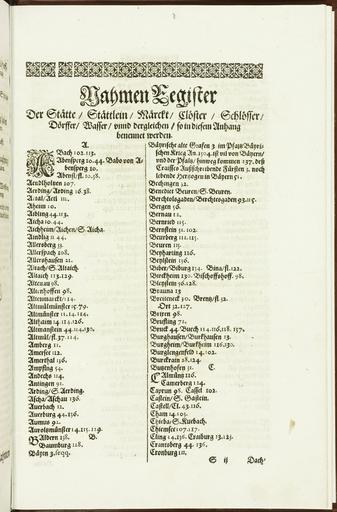 Nahmen Register
Der Stätte / Stättlein / Märckt / Clöster / Schlösser /
Dörffer / Wasser / vnnd dergleichen / so in diesem Anhang
benennet werden.
A.
Abach 102. 113.
Abensperg 10. 44. Babo von A-
bensperg 10.
Abenst/fl. 10. 58.
Aendlholtzen 107.
Aerding/Arding 16. 38.
Aheim 10.
Aibling 44. 113.
Aicha 10. 44.
Aichheim/Aichen/S. Aicha.
Aindling 11. 44.
Allersberg
Allerspach 108.
Allershausen 21.
Altach 113. 129.
Altenau 98.
Altenhoffen 98.
Altenmarckt/114.
Altmülmünster 15. 79.
Altmünster 11. 14. 114.
Altham 14. 114. 126.
Altmanstein 44. 114. 130.
Altmül/fl. 37. 114.
Amberg 11.
Amersee 12.
Amerthal 136.
Ampfing 54.
Andechs 114.
Antingen 91.
Arding/S. Aerding.
Ascha/Aschau 136.
Auerbach 12.
Auerburg 44. 136.
Aumus 91.
Aurolzmünster 14. 115. 119.
B.
Baldern 138.
Baumburg 118.
Bayrische alte Grafen 3. im Pfaltz Bayri-
schen Krieg An. 1504. ist vil von Bäyern/
vnd der Pfaltz/ hinweg kommen 137. deß
Craisses Außschreibende Fürsten 3. noch
lebende Hertzogen in Bäyern 51.
Bechingen 32.
Benedict Beuren/S. Beuren.
Berchtelsgaden/Berchtesgaden 93. 115.
Bergen 56.
Bernau 11.
Bernried 115.
Bernstein 51. 102.
Beurberg 111. 115.
Beuren 115.
Beyharting 116.
Beylstein 136.
Biber/Biburg 134. Bina/fl. 122.
Birckheim 130. Bischoffshoff. 98.
Bleystein 56. 128.
Brauna 13
Breiteneck 30. Brentz/fl. 32.
Ort 32. 127.
Brixen 98.
Briefling 71.
Bruck 44. Buech 114. 116. 118. 137.
Burghausen/Burkhausen 13.
Burgheim/Burkheim 116. 130.
Burglengenfeld 14. 102.
Burckrain 28. 124.
Buttenhofen 31.
C.
Calmüntz 116.
Camerberg 134.
Caprun 98. Cassel 102.
Castein/S. Gastein.
Castell/Cl. 43. 116.
Cham 14. 105.
Chieba/S. Kurbach.
Chiemsee 107. 117.
Cling 14. 136. Craiburg 13. 123.
Crantsberg 44. 136.
Cronburg 111.
S ij
Dach-